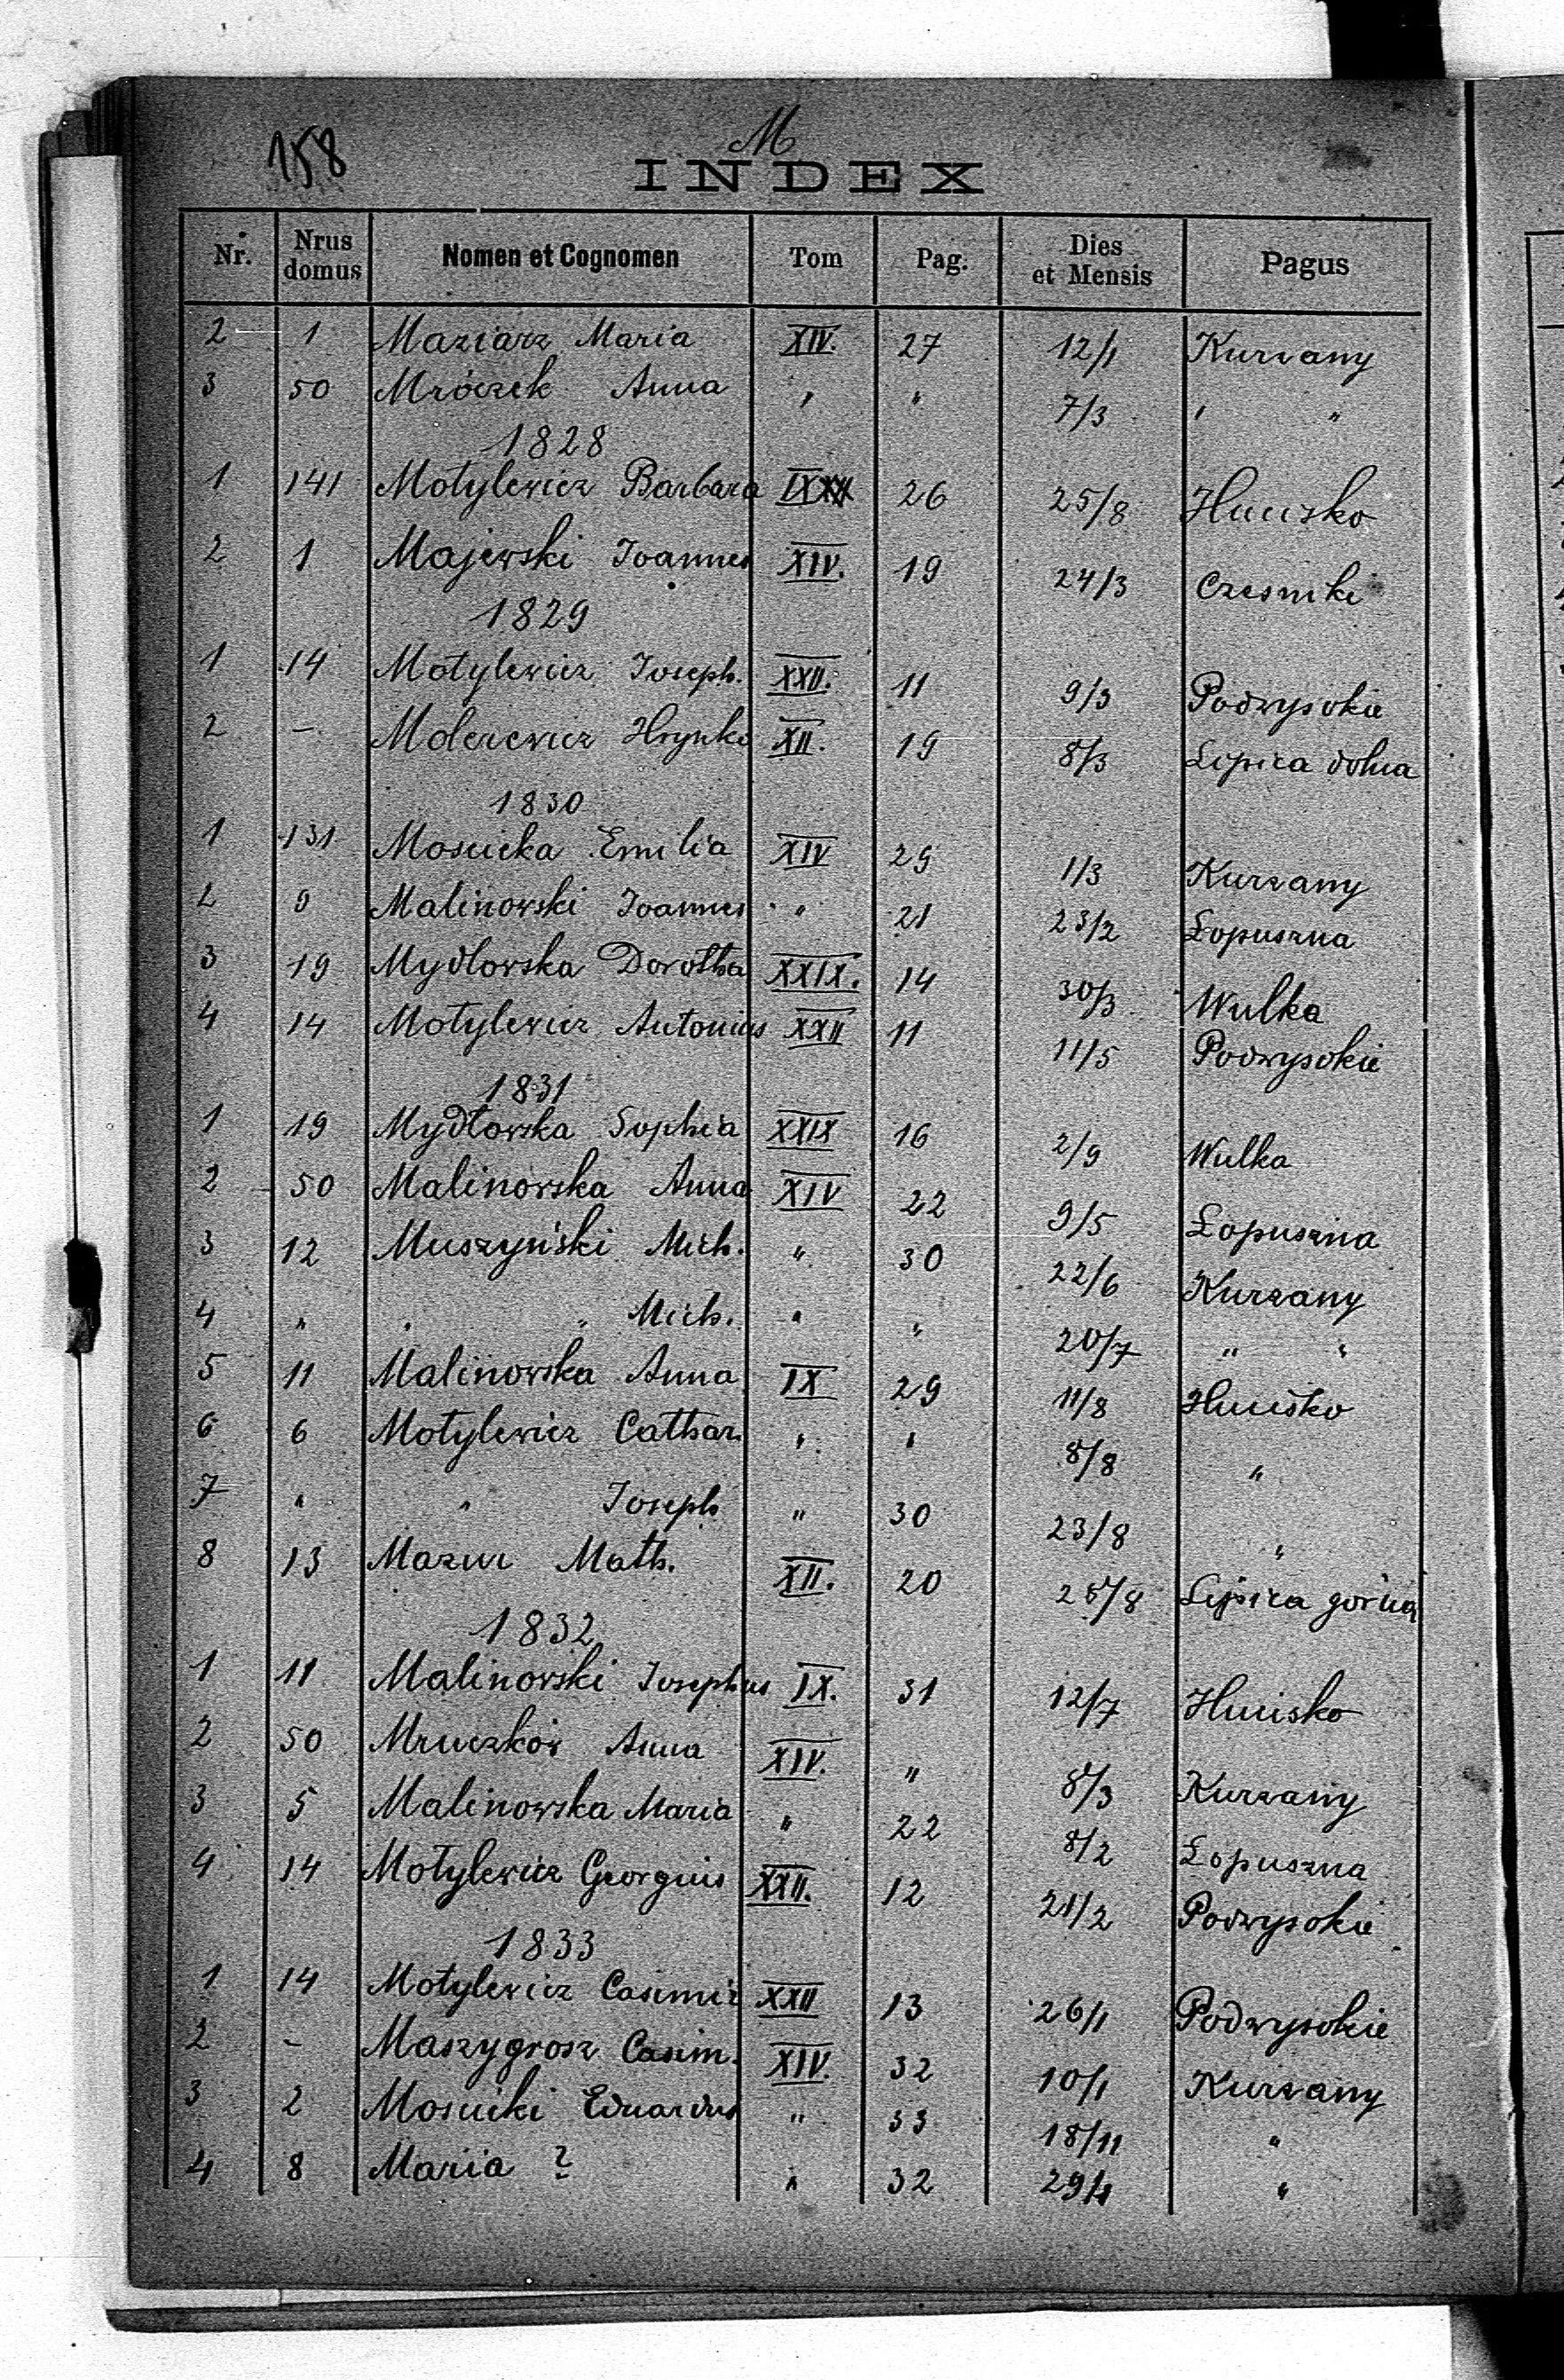 158
M
INDEX
Nr. Nrus domus Nomen et Cognomen Tom Pag. Dies et Mensis Pagus
2 1 Maziarz Maria XIV. 27 12/1 Kurzany
3 50 Mróczek Anna " " 7/3 " "
1828
1 141 Motylewicz Barbara IX 26 25/8 Hucisko
2 1 Majewski Joannes XIV. 19 24/3 Czesniki
1829
1 14 Motylewicz Joseph. XXII. 11 9/3 Podwysokie
2 – Moderewicz Hrynko XII. 19 8/3 Lipica dolna
1830
1 131 Moscicka Emilia XIV 29 1/3 Kurzany
2 9 Malinowski Joannes " 21 23/2 Łopuszna
3 19 Mydlowska Dorothea XXIX. 14 30/3 Wulka
4 14 Motylewicz Antonius XXII 11 11/5 Podwysokie
1831
1 19 Mydłowska Sophia XXIX 16 2/9 Wulka
2 50 Malinowska Anna XIV 22 9/5 Łopuszna
3 12 Muszyński Mich. " 30 22/6 Kurzany
4 " " " Mich. " " 20/7 " "
5 11 Malinowska Anna IX 29 11/8 Hucisko
6 6 Motylewicz Cathar. " " 8/8 "
7 " " Joseph " 30 23/8 "
8 13 Mazur Math. XII. 20 25/8 Lipica górna
1832
1 11 Malinowski Josephus IX. 31 12/7 Hucisko
2 50 Mruczków Anna XIV. " 8/3 Kurzany
3 5 Malinowska Maria " 22 8/2 Łopuszna
4 14 Motylewicz Georgius XXII. 12 21/2 Podwysokie
1833
1 14 Motylewicz Casimir XXII 13 26/1 Podwysokie
2 – Maszygrosz Casim. XIV. 32 10/1 Kurzany
3 2 Moscicki Eduardus " 33 18/11 "
4 8 Maria ? " 32 "